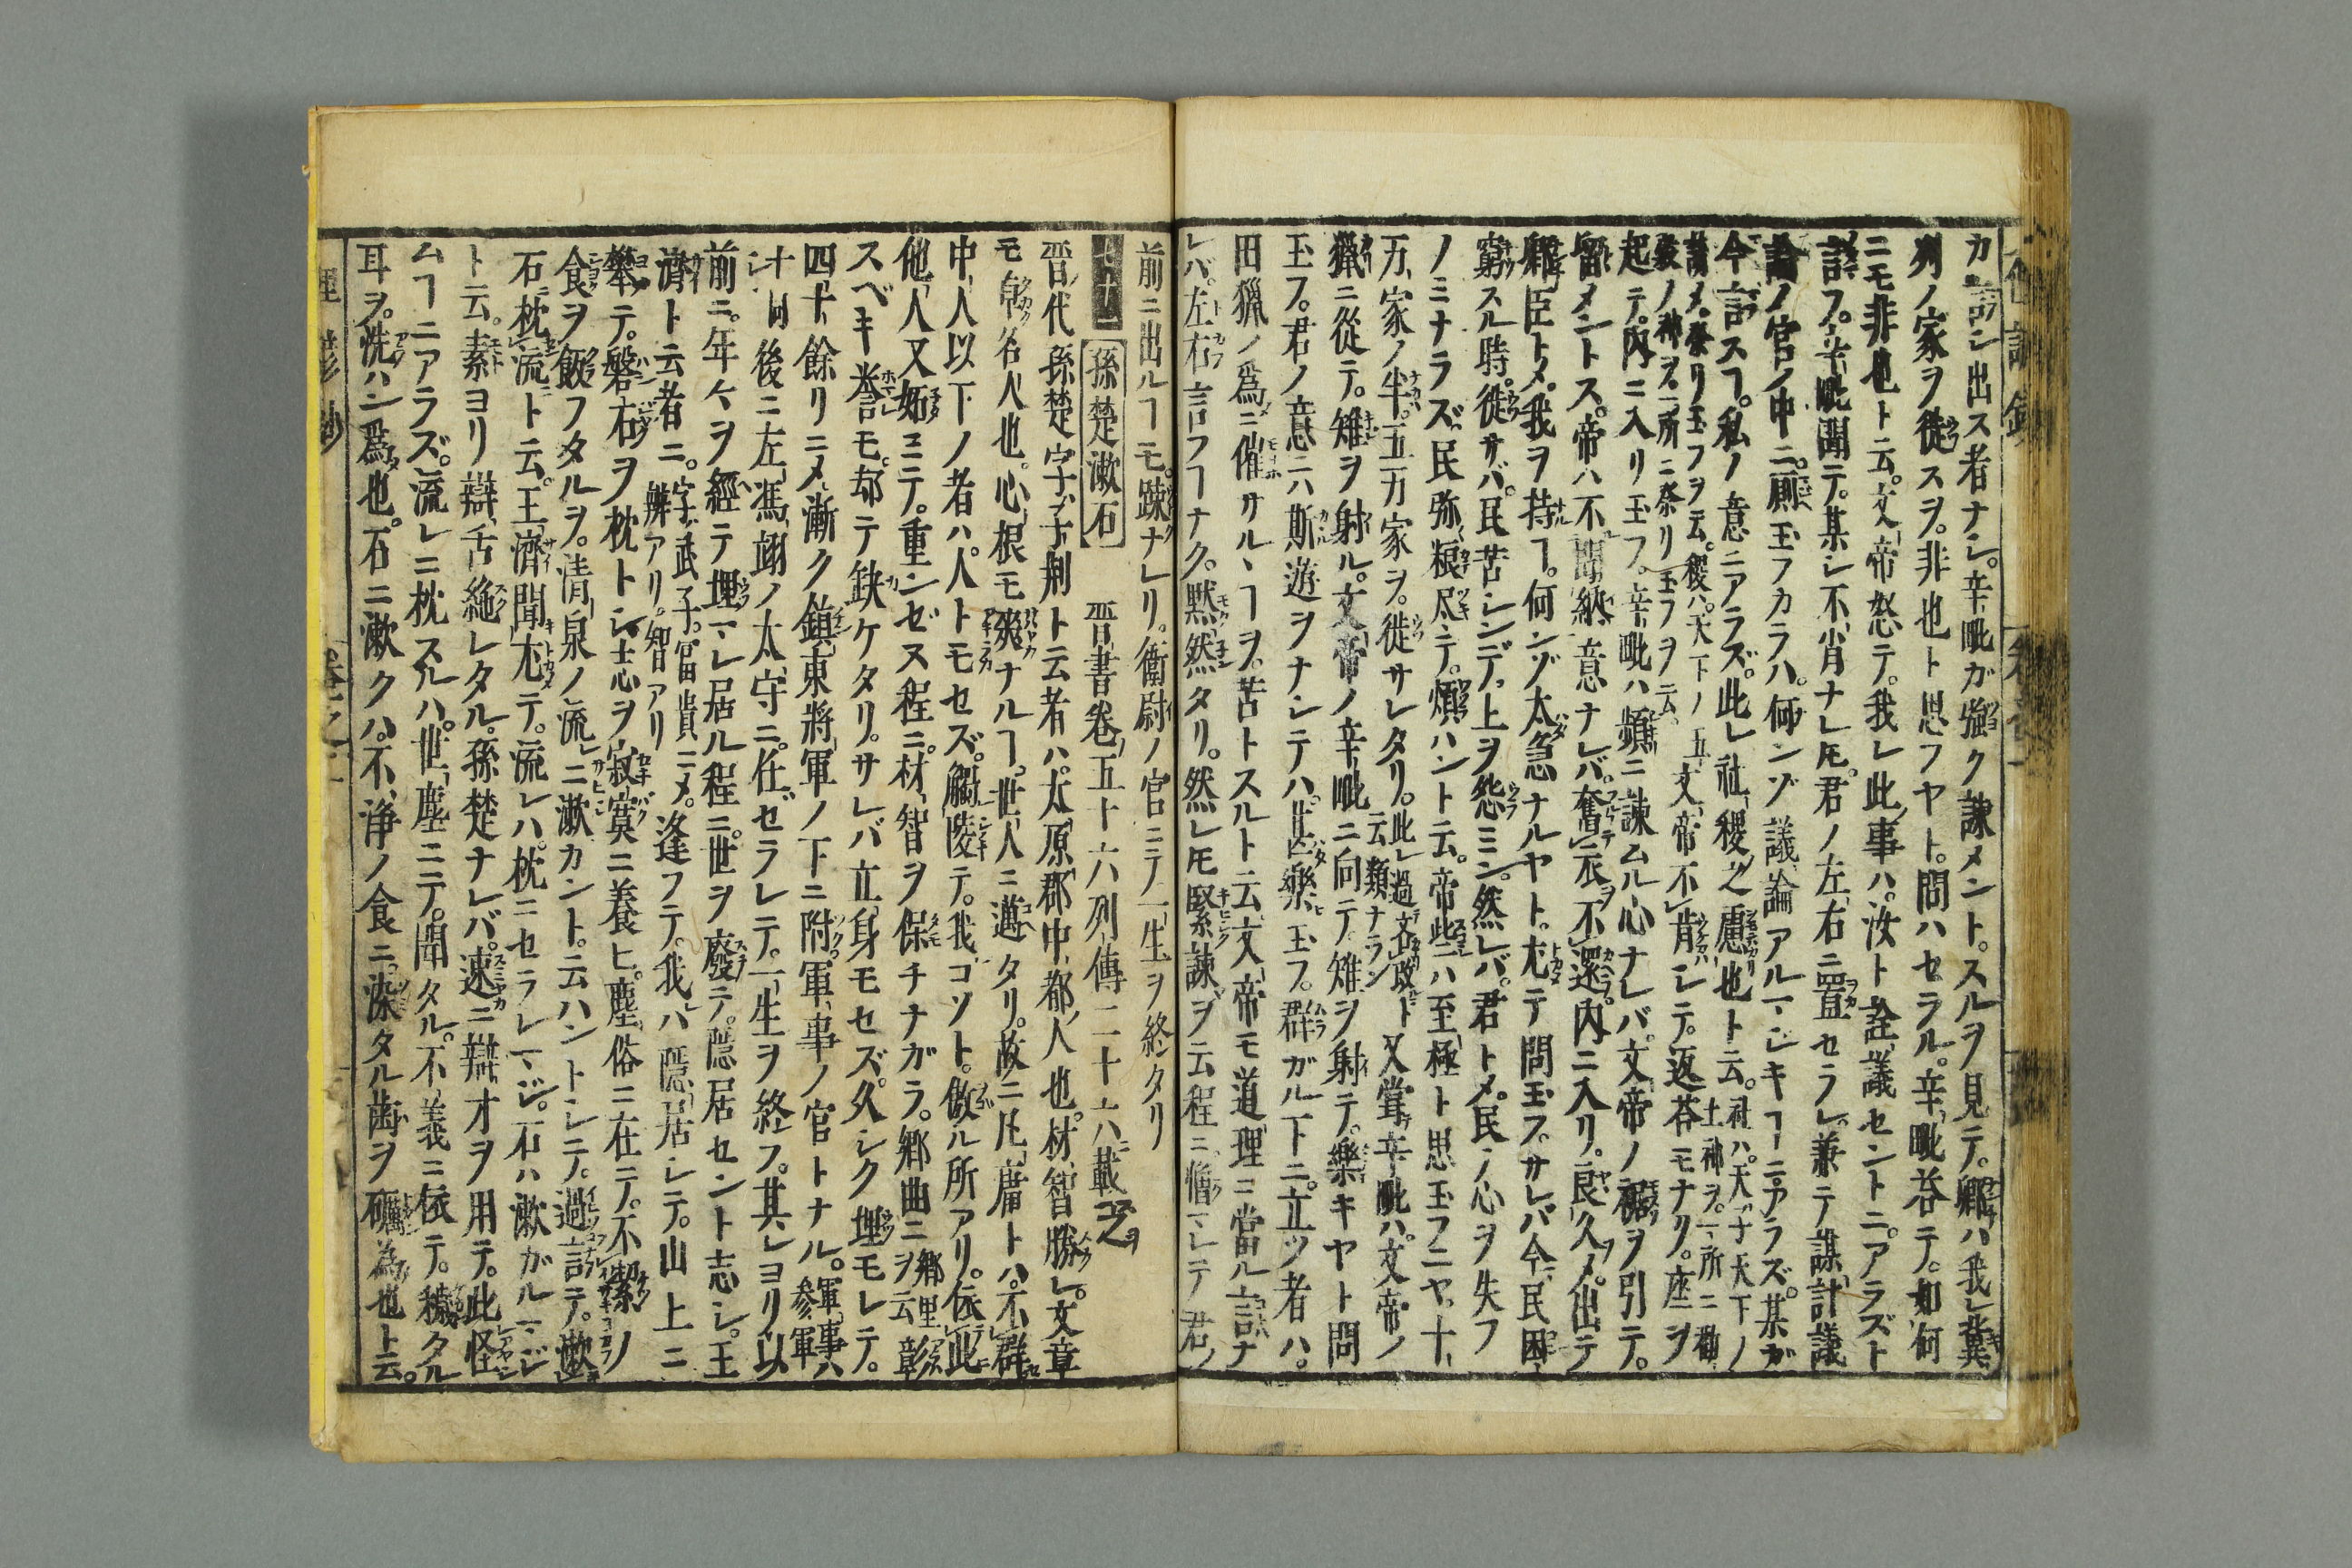 カ言ン出ス者ナシ。辛毗ガ強ク諫メント。スルヲ見テ。卿ハ我レ冀
列ノ家ヲ徙スヲ。非也ト思フヤト。問ハセラル。辛毗答テ。如何
ニモ非也ト云。文帝怒テ。我レ此事ハ。汝ト詮議セントニ。アラズト
詔フ。辛毗聞テ。某シ不肖ナレ𪜈。君ノ左右ニ置セラレ。兼テ謀計議
論ノ官ノ中ニ。厠玉フカラハ。何ンゾ議論アルマシキヿニアラズ。某ガ
今言スヿ。私ノ意ニアラズ。此レ社稷之慮也ト云。社ハ。天子天下ノ土神ヲ。一所ニ勸
請メ。祭リ玉フヲ云。稷ハ。天下ノ五穀ノ神ヲ。一所ニ祭リ玉フヲ云。文帝不肯シテ。返答モナク。座ヲ
起テ。内ニ入リ玉フ。辛毗ハ頻ニ諫ムル心ナレバ。文帝ノ裾ヲ引テ。
留メントス。帝ハ不聞納意ナレバ。奮衣不還。内ニ入リ。良久メ。出テ
卿臣トメ。我ヲ持ヿ。何ンゾ太急ナルヤト。尤テ問玉フ。サレバ今民困
窮スル時。徙サバ。民苦シンデ。上ヲ怨ミン。然レバ。君トメ。民ノ心ヲ失フ
ノミナラズ。民弥粮尽テ。煩ハント云。帝此ニハ至極ト思玉フニヤ。十
万家ノ半。五万家ヲ。徙サレタリ。此レ過必改ト云類ナラン又嘗辛毗ハ。文帝ノ
獵ニ從テ。雉ヲ射ル。文帝ノ辛毗ニ向テ。雉ヲ射テ。樂キヤト問
玉フ。君ノ意ニハ斯遊ヲナシテハ。甚樂玉フ。群ガル下ニ。立ツ者ハ。
田獵ノ爲ニ催サルヽヿヲ。苦トスルト云。文帝モ道理ニ當ル言ナ
レバ。左右言フヿナク。黙然タリ。然レ𪜈緊諫ヲ云程ニ。憎マレテ君ノ
前ニ出ルヿモ。踈ナレリ。衞尉ノ官ニテ一生ヲ終タリ
孫楚漱石 晋書卷五十六列傳二十六載之ヲ
晋代孫楚字子荆ト云者ハ。太原郡中都人也。材智勝レ。文章
モ卓名人也。心根モ爽ナルヿ。世人ニ邁タリ。故ニ凡庸トハ。不群
中人以下ノ者ハ。人トモセズ。觸陵テ。我コソト。傲ル所アリ。依此
他人又妬ミテ。重ンゼヌ程ニ。材智ヲ保チナガラ。郷曲ニ郷里ヲ云彰
スベキ誉モ。却テ缺ケタリ。サレバ立身モセズ。久シク埋モレテ。
四十餘リニメ漸ク鎮東將軍ノ下ニ附。軍事ノ官トナル。軍事ハ參軍
十一向後ニ左馮翊ノ太守ニ。仕ゼラレテ。一生ヲ終フ。其レヨリ以
前ニ。年久ヲ經テ埋マレ居ル程ニ。世ヲ廢テ。隱居セント志シ。王
濟ト云者ニ。字武子。富貴ニメ。辨アリ。智アリ逢フテ。我ハ隱居シテ。山上ニ
攀テ。磐石ヲ枕トシ。志ヲ寂寞ニ養ヒ。塵俗ニ在テ。不潔ノ
食ヲ飯フタルヲ。清泉ノ流ニ漱カント。云ハントシテ。過言テ。漱
石枕流ト云。王濟聞尤テ。流レハ。枕ニセラレマジ。石ハ漱ガルマジ
ト云。素ヨリ辯舌絶レタル。孫楚ナレバ。速ニ辯才ヲ用テ。此怪
ムヿニアラズ。流レニ枕スルハ。世塵ニテ。聞タル。不義ニ依テ。穢タル
耳ヲ。洗ハン爲也。石ニ漱クハ。不淨ノ食ニ。染タル歯ヲ礪為也ト云。